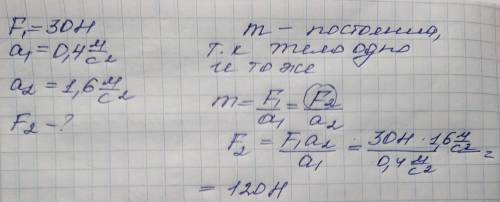 F₁=30Н
a₁=0,4 м/с²
a₂=1,6 м/с²
F₂-?
m - постоянна,
т.к тело одно
и то же
m=F₁/a₁=F₂/a₂
F₂=F₁a₂/a₁=30Н·1,6 м/с²/0,4 м/с²=
=120Н